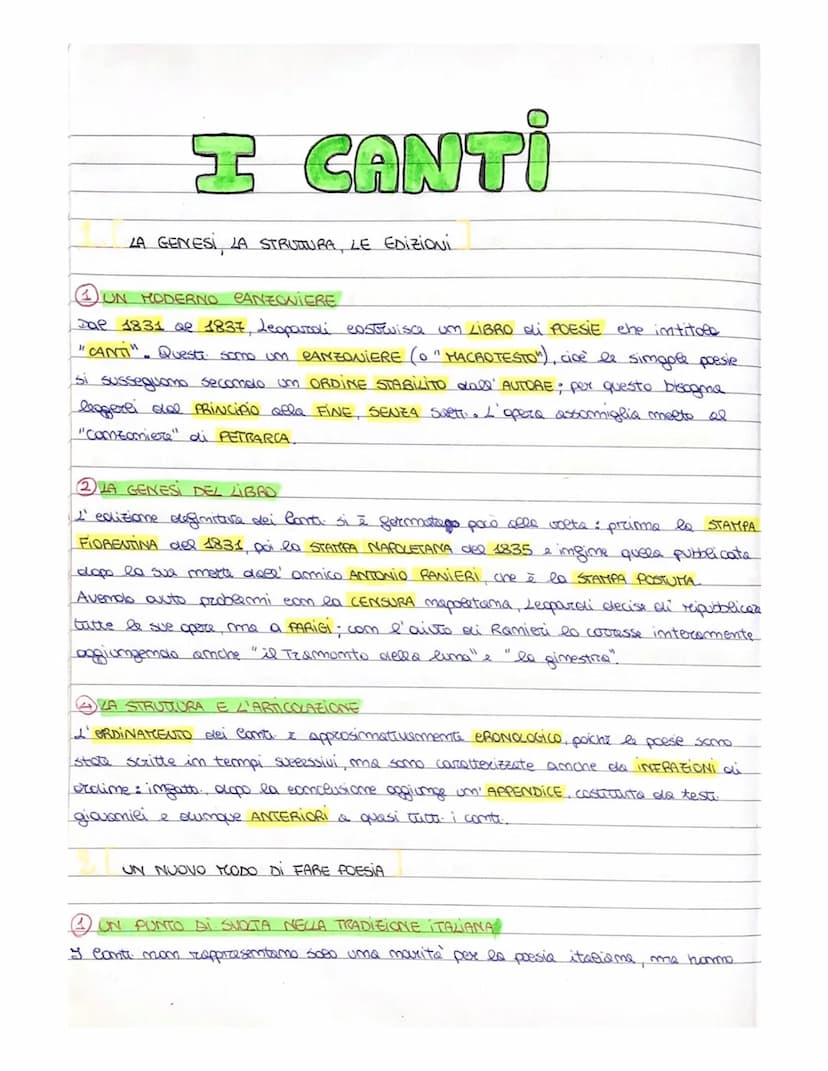 I CANTI
1. LA GENESI, LA STRUTTURA, LE EDIZIONI
1 UN MODERNO CANZONIERE
Dal 1831 al 1837, Leopardi costruisce un LIBRO di POESIE che intitola
"CANTI". Questi sono un CANZONIERE (o "MACROTESTO"), cioè le singole poesie
si susseguono secondo un ORDINE STABILITO dall'AUTORE; per questo bisogna
leggerli dal PRINCIPIO alla FINE, SENZA salti. L'opera assomiglia molto al
"canzoniere" di PETRARCA.
2 LA GENESI DEL LIBRO
L'edizione definitiva dei Canti si è poco alla volta: prima la STAMPA
FIORENTINA del 1831, poi la STAMPA NAPOLETANA del 1835 e infine quella pubblicata
dopo la sua morte dall'amico ANTONIO RANIERI, che è la STAMPA POSTUMA.
Avendo avuto problemi con la CENSURA napoletana, Leopardi decise di ripubblicare
tutte le sue opere, ma a PARIGI; con l'aiuto di Ranieri lo corresse interamente
aggiungendo anche "il Tramonto della luna" e "la ginestra".
4 LA STRUTTURA E L'ARTICOLAZIONE
L'ORDINAMENTO dei Canti è approssimativamente CRONOLOGICO, poichè le poesie sono
state scritte in tempi successivi, ma sono caratterizzate anche da INFRAZIONI di
ordine: infatti, dopo la conclusione aggiunge un'APPENDICE, costituita da testi
giovanili e dunque ANTERIORI a quasi tutti i canti.
2. UN NUOVO MODO DI FARE POESIA
1 UN PUNTO DI SVOLTA NELLA TRADIZIONE ITALIANA
I Canti non rappresentano solo una novità per la poesia italiana, ma hanno